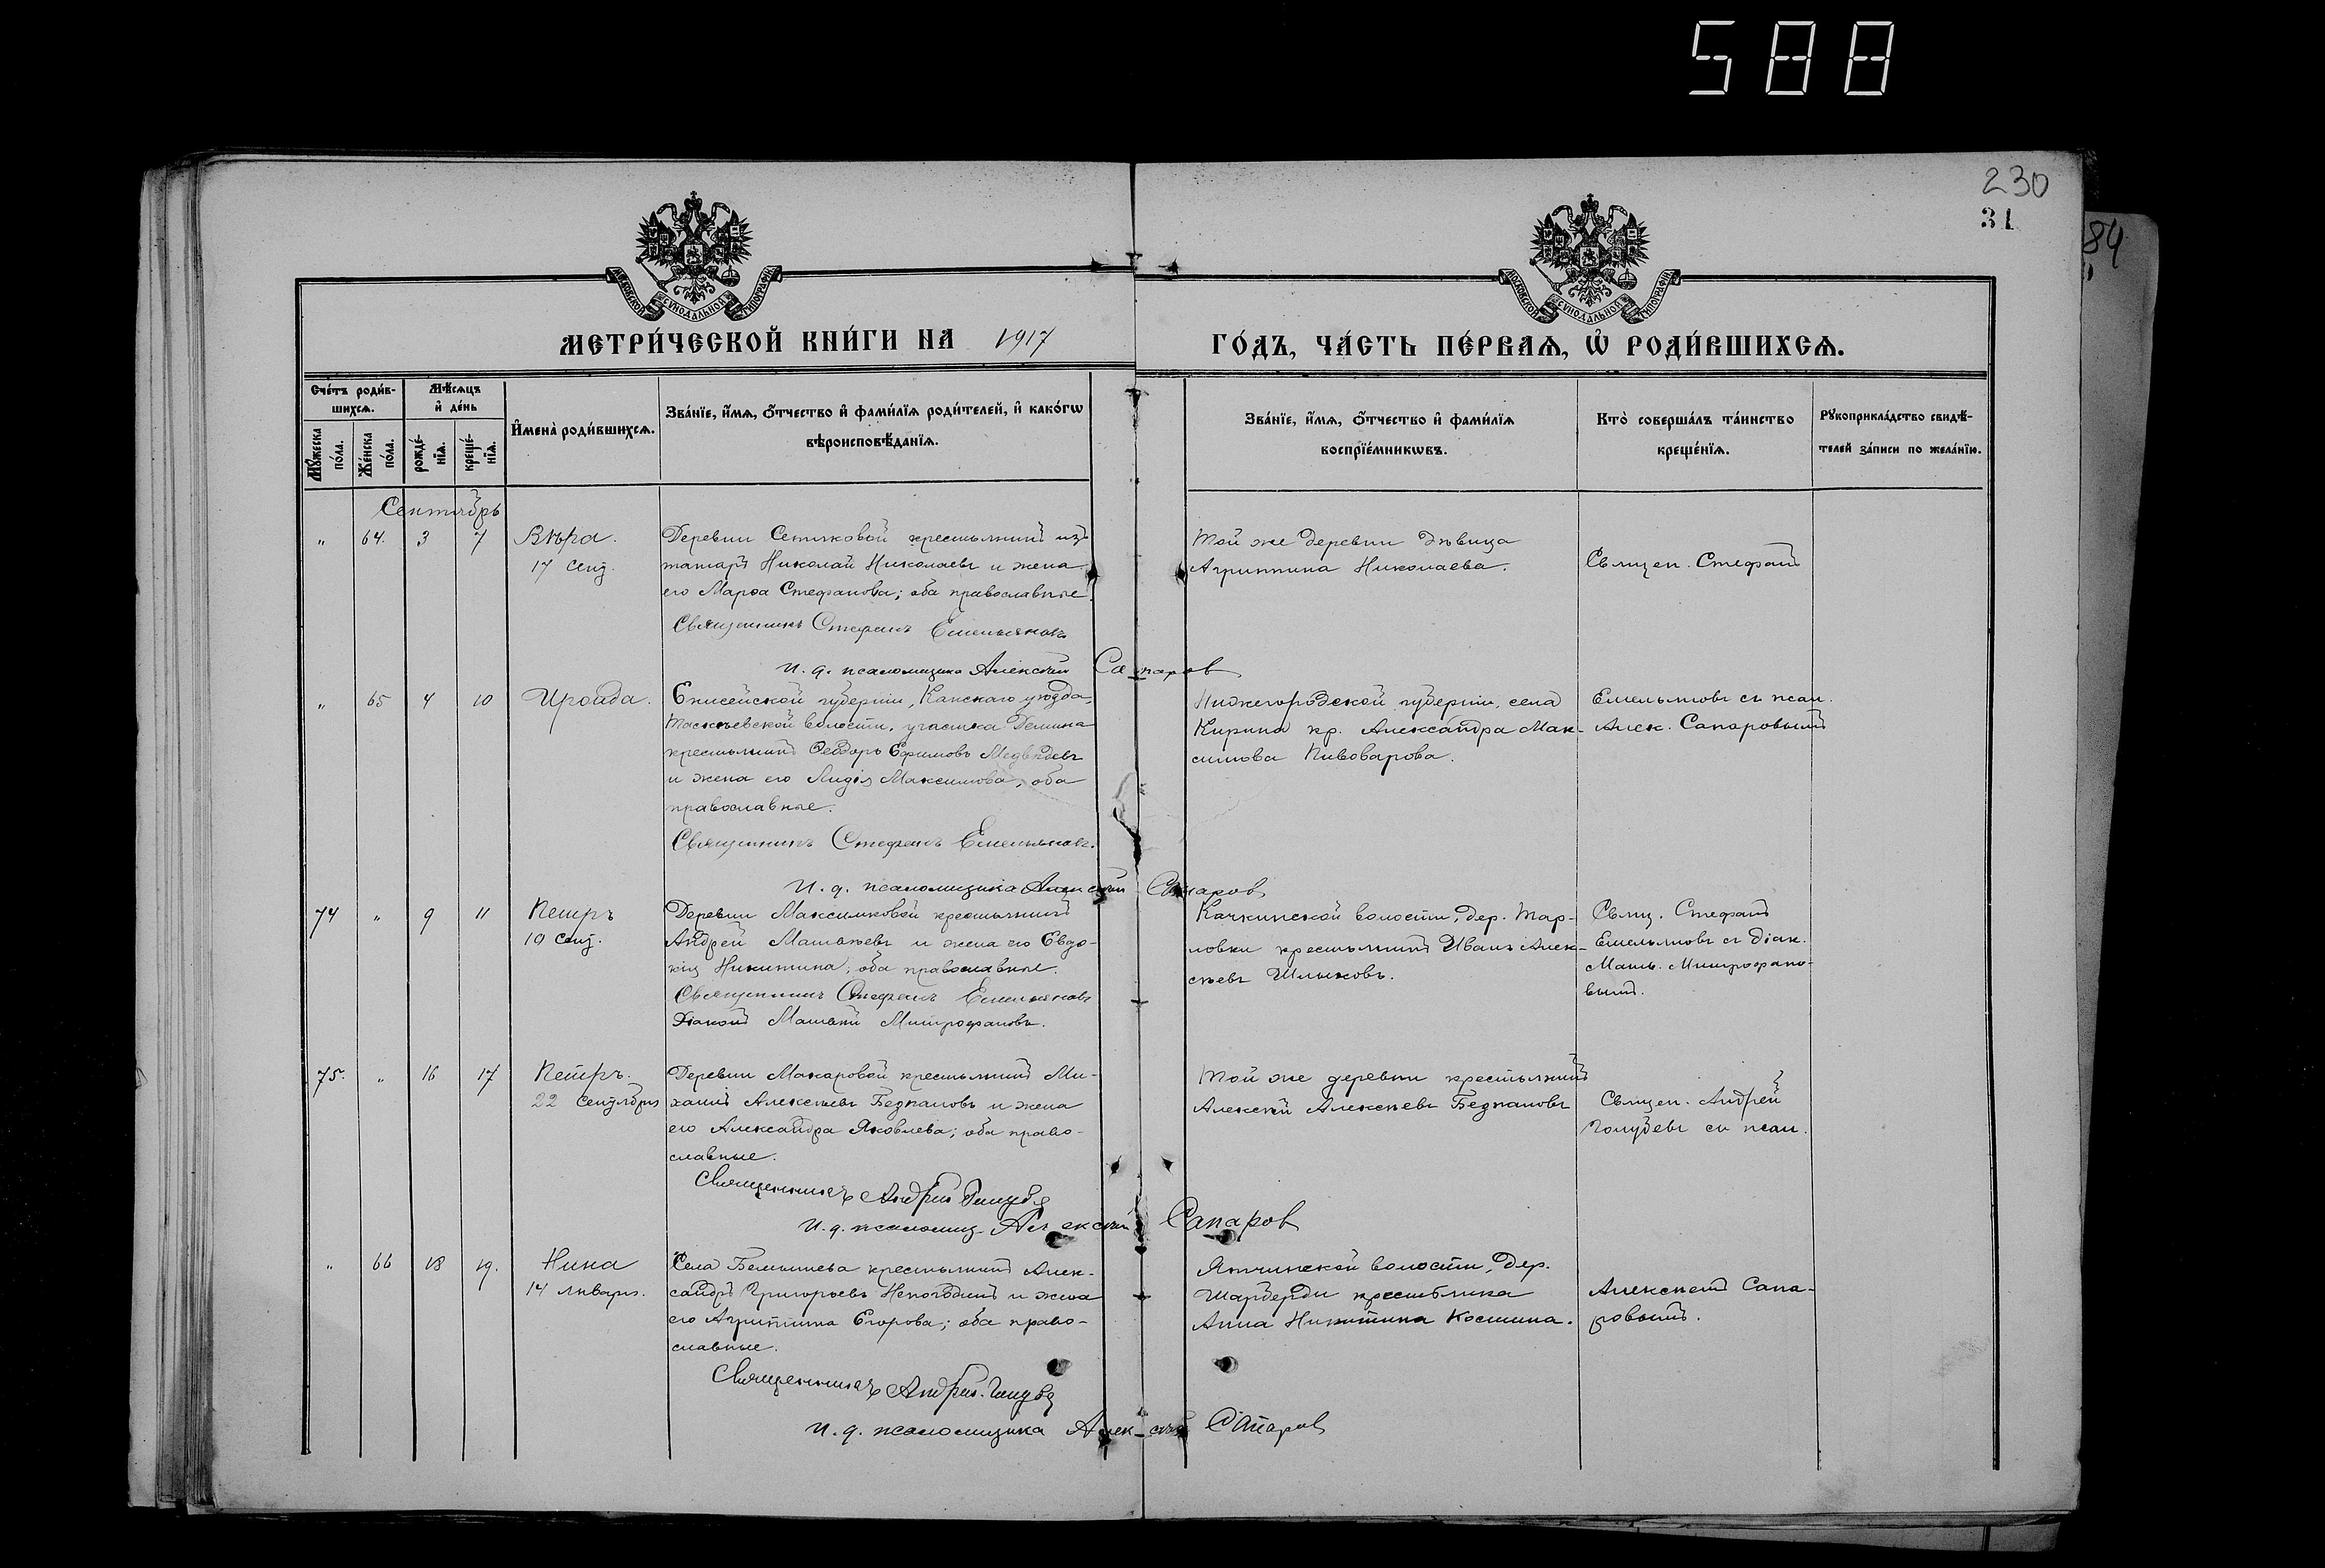 588
230
31
84
МЕТРИ́ЧЕСКОЙ КНИ́ГИ НА 1917
ГО́ДЪ, ЧА́СТЬ ПЕ́РВАЯ, Ѡ҆ РОДИ́ВШИХСЯ.
Сче́тъ роди́в-
шихся.
Мѣ́сяцъ
и҆ де́нь
Мꙋ́жеска
по́ла.
Же́нска
по́ла.
рожде́-
нїя.
креще́-
нїя.
И҆мена̀ роди́вшихся.
Зва́нїе, и҆́мя, ѻ҆́тчество и҆ фами́лїя роди́телей, и҆ како́гѡ
вѣроисповѣ́данїя.
Зва́нїе, и҆́мя, ѻ҆́тчество и҆ фами́лїя
воспрїе́мникѡвъ.
Кто̀ соверша́лъ та́инство
креще́нїя.
Рꙋкоприкла́дство свидѣ́-
телей за́писи по жела́нїю.
Сентябрь
" 64. 3 7 Вѣра.
17 сент.
Деревни Сетяковой крестьянинъ изъ
татаръ Николай Николаевъ и жена
его Марѳа Стефанова; оба православные.
Священникъ Стефанъ Емельяновъ
И. д. псаломщика Алексѣй Сапаров
Той же деревни дѣвица
Агриппина Николаева.
Священ. Стефанъ
" 65 4 10 Ироида.
Енисейской губерніи, Канскаго уѣзда,
Таскѣевской волости, участка Демина
крестьянинъ Ѳеодоръ Ефимовъ Медвѣдевъ
и жена его Лидія Максимова, оба
православные.
Священникъ Стефанъ Емельяновъ.
И. д. псаломщика Алексѣй Сапаров
Нижегородской губерніи, села
Кирина кр. Александра Мак-
симова Пивоварова.
Емельяновъ съ псал.
Алек. Сапаровымъ
74 " 9 11 Петръ
19 сент.
Деревни Максимковой крестьянинъ
Андрей Матвѣевъ и жена его Евдо-
кія Никитина; оба православные.
Священникъ Стефанъ Емельяновъ
Діаконъ Матвѣй Митрофановъ.
Качкинской волости, дер. Тар-
ловки крестьянинъ Иванъ Алек-
сѣевъ Шлыковъ.
Свящ. Стефанъ
Емельяновъ съ діак.
Матв. Митрофано-
вымъ.
75. " 16 17 Петръ.
22 сентября
Деревни Макаровой крестьянинъ Ми-
хаилъ Алексѣевъ Безпаловъ и жена
его Александра Яковлева; оба право-
славные.
Священникъ Андрей Голубев
И. д. псаломщ. Алексѣй Сапаров
Той же деревни крестьянинъ
Алексѣй Алексѣевъ Безпаловъ
Священ. Андрей
Голубевъ съ псал.
" 66 18 19. Нина
14 января.
Села Бемышева крестьянинъ Алек-
сандръ Григорьевъ Непогодинъ и жена
его Агриппина Егорова; оба право-
славные.
Священникъ Андрей Голубев
И. д. псаломщика Алексѣй Сапаров
Ятчинской волости, дер.
крестьянка
Анна Никитина Костина.
Алексѣемъ Сапа-
ровымъ.